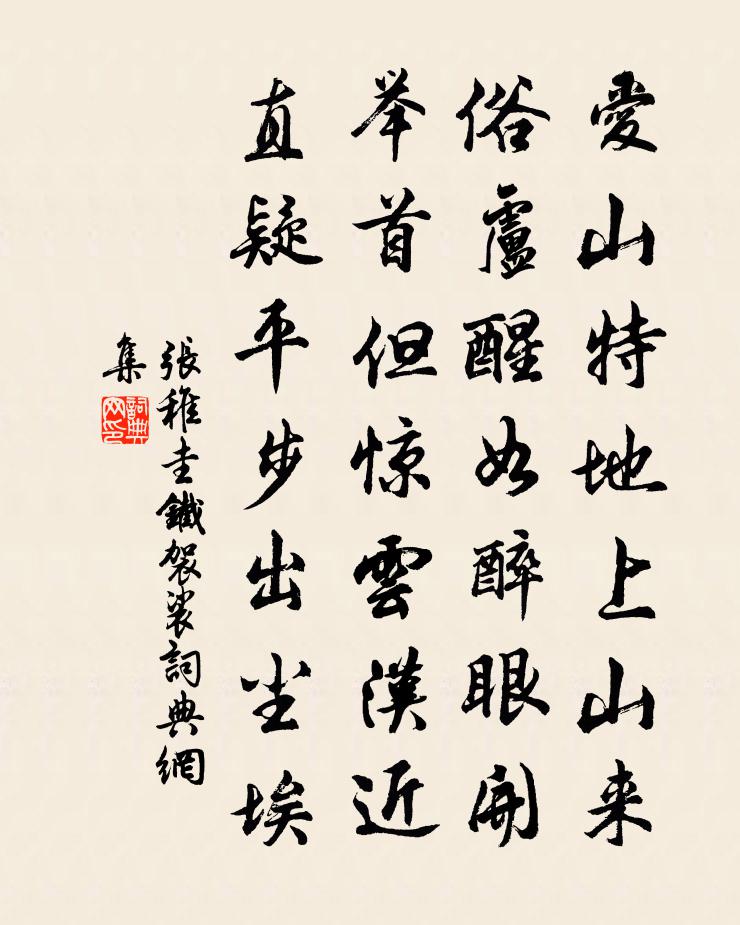 愛山特地上山来
俗慮醒如醉眼開
举首但惊雲漢近
直疑平步出尘埃
張稚圭鐵袈裟詞典網
集
詞典
网印